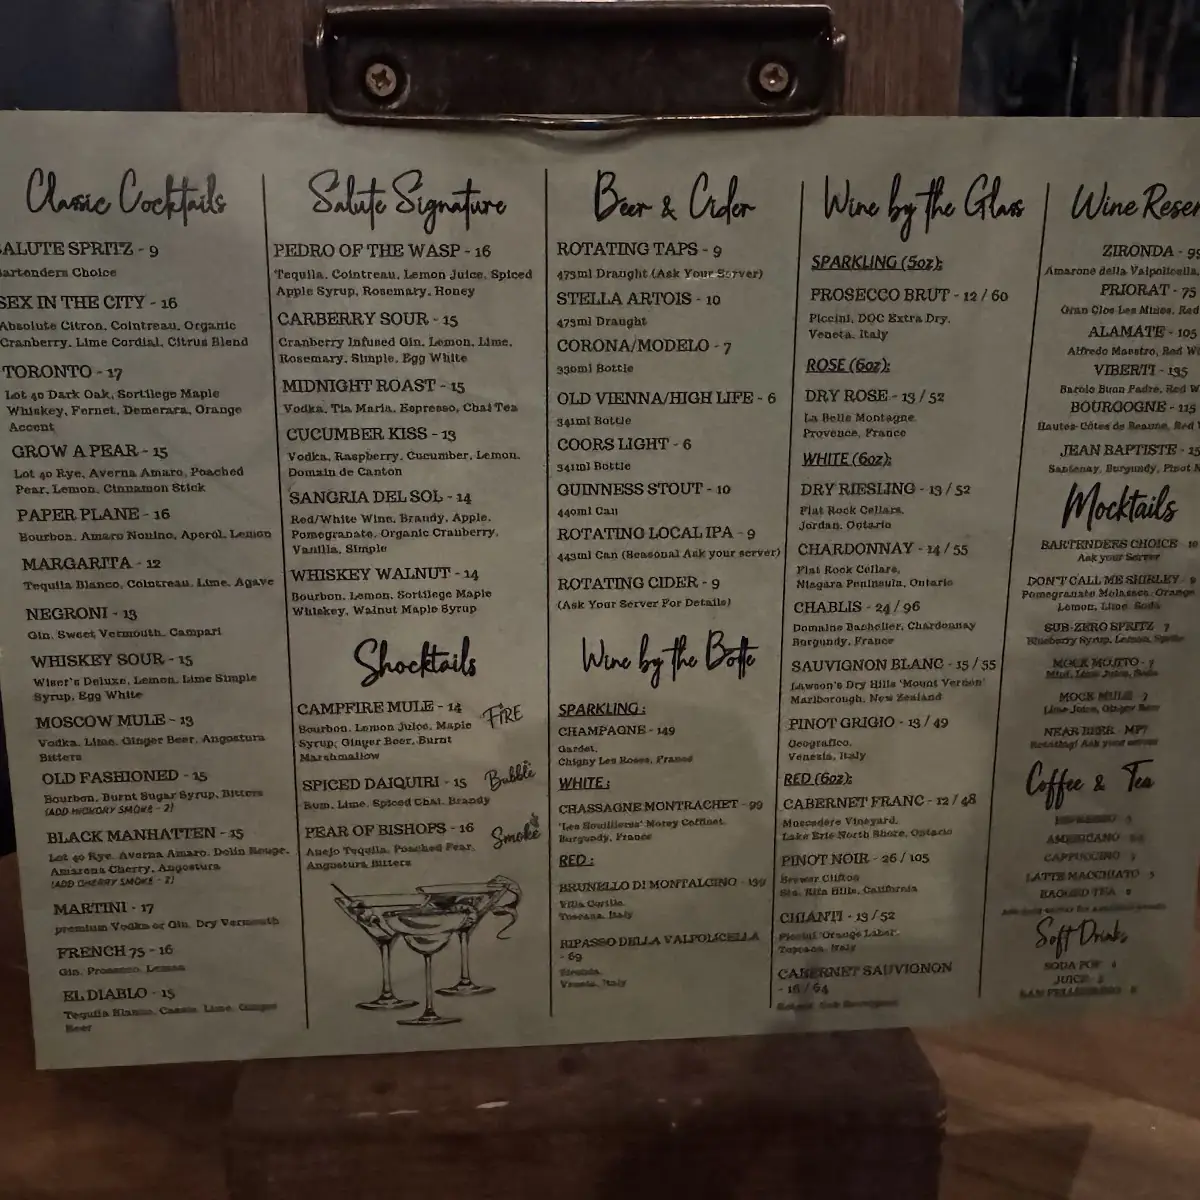 Classic Cocktails
SALUTE SPRITZ - 9
Bartenders Choice
SEX IN THE CITY - 16
Absolute Citron, Cointreau, Organic
Cranberry, Lime Cordial, Citrus Blend
TORONTO - 17
Lot 40 Dark Oak, Sortilege Maple
Whiskey, Fernet, Demerara, Orange
Accent
GROW A PEAR - 15
Lot 40 Rye, Averna Amaro, Poached
Pear, Lemon, Cinnamon Stick
PAPER PLANE - 16
Bourbon, Amaro Nonino, Aperol, Lemon
MARGARITA - 12
Tequila Blanco, Cointreau, Lime, Agave
NEGRONI - 13
Gin, Sweet Vermouth, Campari
WHISKEY SOUR - 15
Wiser's Deluxe, Lemon, Lime Simple
Syrup, Egg White
MOSCOW MULE - 13
Vodka, Lime, Ginger Beer, Angostura
Bitters
OLD FASHIONED - 15
Bourbon, Burnt Sugar Syrup, Bitters
(ADD HICKORY SMOKE - 2)
BLACK MANHATTEN - 15
Lot 40 Rye, Averna Amaro, Dolin Rouge,
Amarena Cherry, Angostura
(ADD CHERRY SMOKE - 2)
MARTINI - 17
premium Vodka or Gin, Dry Vermouth
FRENCH 75 - 16
Gin, Prosecco, Lemon
EL DIABLO - 15
Tequila Blanco, Cassis, Lime, Ginger
Beer
Salute Signature
PEDRO OF THE WASP - 16
Tequila, Cointreau, Lemon Juice, Spiced
Apple Syrup, Rosemary, Honey
CARBERRY SOUR - 15
Cranberry Infused Gin, Lemon, Lime,
Rosemary, Simple, Egg White
MIDNIGHT ROAST - 15
Vodka, Tia Maria, Espresso, Chai Tea
CUCUMBER KISS - 13
Vodka, Raspberry, Cucumber, Lemon,
Domain de Canton
SANGRIA DEL SOL - 14
Red/White Wine, Brandy, Apple,
Pomegranate, Organic Cranberry,
Vanilla, Simple
WHISKEY WALNUT - 14
Bourbon, Lemon, Sortilege Maple
Whiskey, Walnut Maple Syrup
Shocktails
CAMPFIRE MULE - 14 FIRE
Bourbon, Lemon Juice, Maple
Syrup, Ginger Beer, Burnt
Marshmallow
SPICED DAIQUIRI - 15 Bubble
Rum, Lime, Spiced Chai, Brandy
PEAR OF BISHOPS - 16 Smoke
Anejo Tequila, Poached Pear,
Angostura Bitters
Beer & Cider
ROTATING TAPS - 9
473ml Draught (Ask Your Server)
STELLA ARTOIS - 10
473ml Draught
CORONA/MODELO - 7
330ml Bottle
OLD VIENNA/HIGH LIFE - 6
341ml Bottle
COORS LIGHT - 6
341ml Bottle
GUINNESS STOUT - 10
440ml Can
ROTATING LOCAL IPA - 9
443ml Can (Seasonal Ask your server)
ROTATING CIDER - 9
(Ask Your Server For Details)
Wine by the Bottle
SPARKLING :
CHAMPAGNE - 149
Gardet,
Chigny Les Roses, France
WHITE :
CHASSAGNE MONTRACHET - 99
'Les Houillieres' Morey Coffinet,
Burgundy, France
RED :
BRUNELLO DI MONTALCINO - 139
Villa Corille,
Toscana, Italy
RIPASSO DELLA VALPOLICELLA
- 69
Zironda,
Veneto, Italy
Wine by the Glass
SPARKLING (5oz):
PROSECCO BRUT - 12 / 60
Piccini, DOC Extra Dry,
Veneta, Italy
ROSE (6oz):
DRY ROSE - 13 / 52
La Belle Montagne,
Provence, France
WHITE (6oz):
DRY RIESLING - 13 / 52
Flat Rock Cellars,
Jordan, Ontario
CHARDONNAY - 14 / 55
Flat Rock Cellars,
Niagara Peninsula, Ontario
CHABLIS - 24 / 96
Domaine Bachelier, Chardonnay
Burgundy, France
SAUVIGNON BLANC - 15 / 55
Lawson's Dry Hills 'Mount Vernon'
Marlborough, New Zealand
PINOT GRIGIO - 13 / 49
Geografico,
Venesia, Italy
RED (6oz):
CABERNET FRANC - 12 / 48
Muscedere Vineyard,
Lake Erie North Shore, Ontario
PINOT NOIR - 26 / 105
Brewer Clifton
Sta. Rita Hills, California
CHIANTI - 13 / 52
Piccini 'Orange Label',
Toscana, Italy
CABERNET SAUVIGNON
- 16 / 64
Wine Reser
ZIRONDA - 99
Amarone della Valpolicella,
PRIORAT - 75
Gran Clos Les Mines, Red
ALAMATE - 105
Alfredo Maestro, Red Wi
VIBERTI - 135
Barolo Buon Padre, Red W
BOURGOGNE - 115
Hautes-Côtes de Beaune, Red
JEAN BAPTISTE - 15
Santenay, Burgundy, Pinot N
Mocktails
BARTENDERS CHOICE - 10
Ask your Server
DON'T CALL ME SHIRLEY - 9
Pomegranate Molasses, Orange
Lemon, Lime, Soda
SUB-ZERO SPRITZ - 7
Blueberry Syrup, Lemon, Sprite
MOCK MOJITO - 7
Mint, Lime Juice, Soda
MOCK MULE - 7
Lime Juice, Ginger Beer
NEAR BEER - MP?
Rotating! Ask your server
Coffee & Tea
ESPRESSO - 3
AMERICANO
CAPPUCCINO
LATTE MACCHIATO - 5
BAGGED TEA
Soft Drinks
SODA POP - 4
JUICE
SAN PELLEGRINO